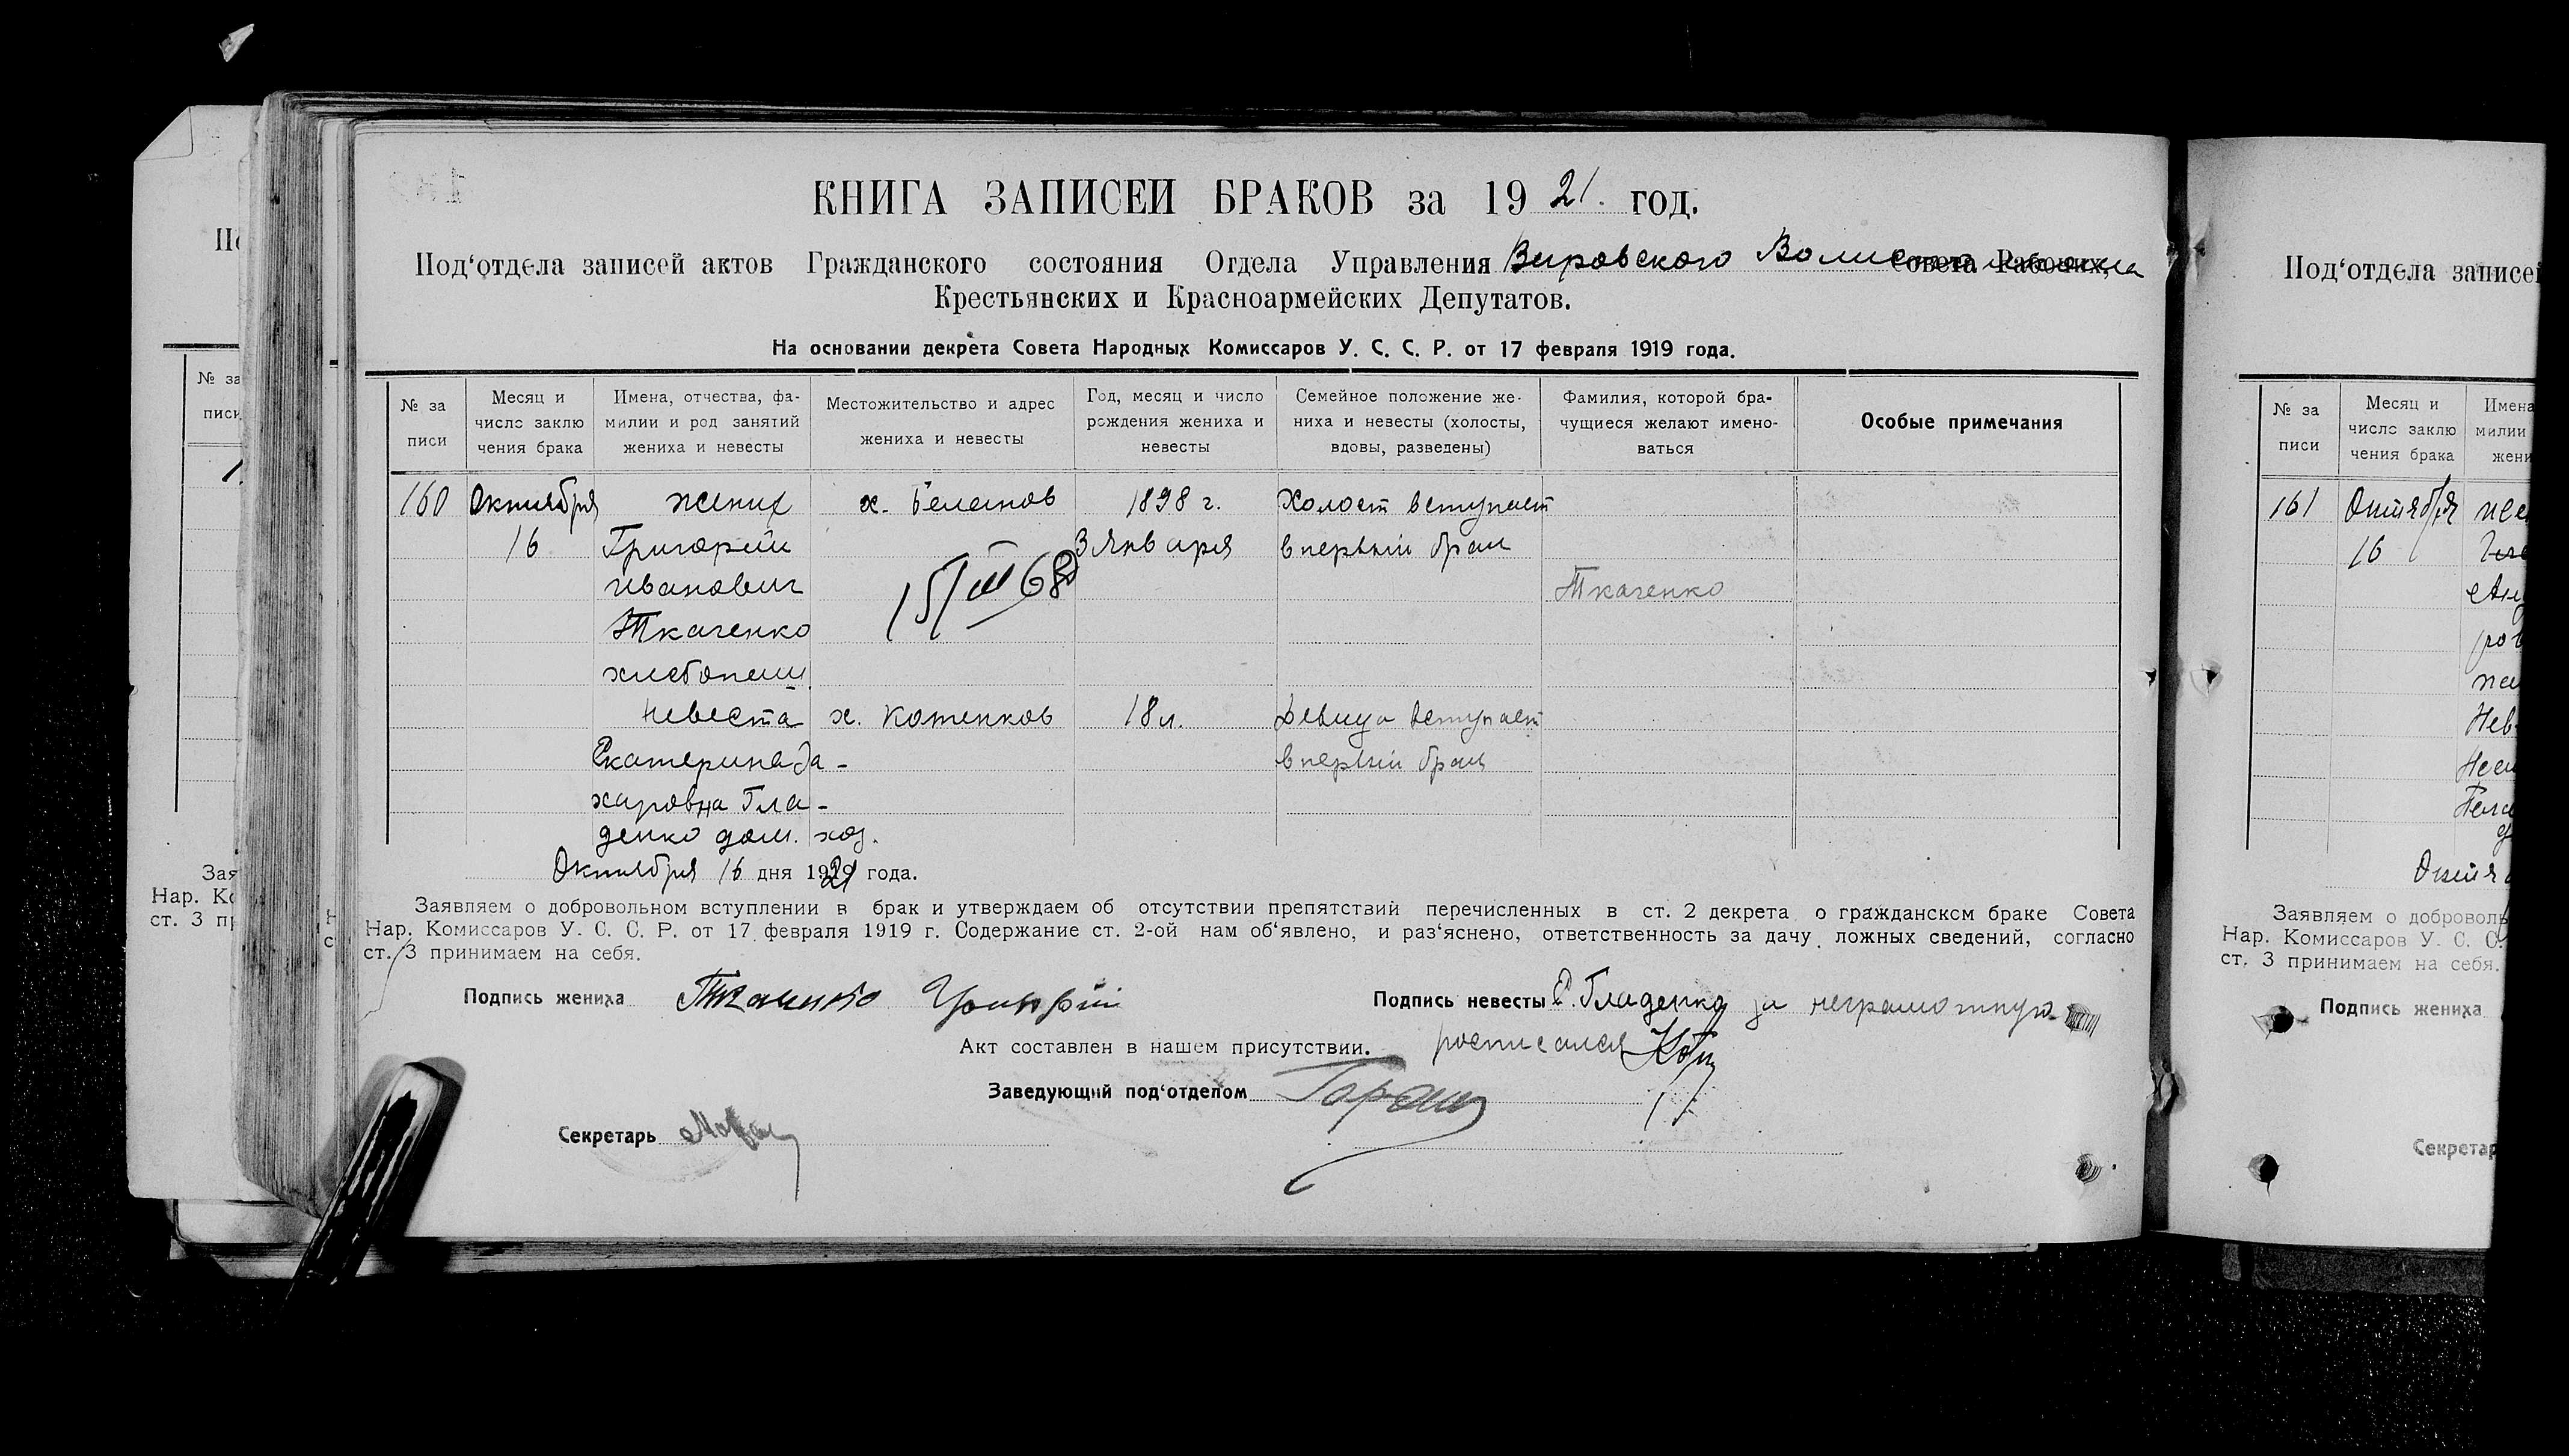 КНИГА ЗАПИСЕЙ БРАКОВ за 1921. год.
Под‘отдела записей актов Гражданского состояния Отдела Управления Вировского Волисполкома Совета Рабочих,
Крестьянских и Красноармейских Депутатов.
На основании декрета Совета Народных Комиссаров У. С. С. Р. от 17 февраля 1919 года.
№ за
писи
Месяц и
число заклю
чения брака
Имена, отчества, фа-
милии и род занятий
жениха и невесты
Местожительство и адрес
жениха и невесты
Год, месяц и число
рождения жениха и
невесты
Семейное положение же-
ниха и невесты (холосты,
вдовы, разведены)
Фамилия, которой бра-
чущиеся желают имено-
ваться
Особые примечания
160 Октября жених х. 1898 г. Холост вступает
16 Григорий 3 Января в первый брак
Иванович 15/III 68 Ткаченко
Ткаченко
хлебопаш.
Невеста х. Коженков 18 л. Девица вступает
Екатерина За- в первый брак
харовна Гла-
денко дом. хоз.
Октября 16 дня 1921 года.
Заявляем о добровольном вступлении в брак и утверждаем об отсутствии препятствий перечисленных в ст. 2 декрета о гражданском браке Совета
Нар. Комиссаров У. С. С. Р. от 17 февраля 1919 г. Содержание ст. 2-ой нам об‘явлено, и раз‘яснено, ответственность за дачу ложных сведений, согласно
ст. 3 принимаем на себя.
Подпись жениха Ткаченко Григорий
Подпись невесты Е. Гладенко за неграмотную
росписался
Акт составлен в нашем присутствии.
Заведующий под‘отделом
Секретарь
Под‘отдела записей
№ за
писи
Месяц и
число заклю
чения брака
Имена
милии
жени
161 Октября
16
Нев
Заявляем о доброволь
Нар. Комиссаров У. С. С.
ст. 3 принимаем на себя.
Подпись жениха
Секретар
№ за
писи
Зая
Нар. Ко
ст. 3 пр